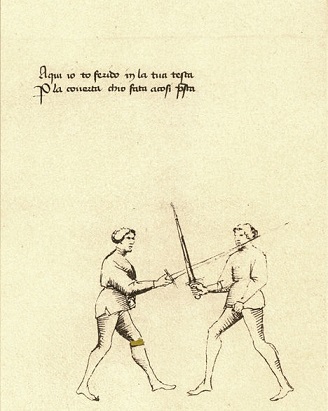 Aqui io to ferido in la tua testa
P la couerta chio fata acosi psta